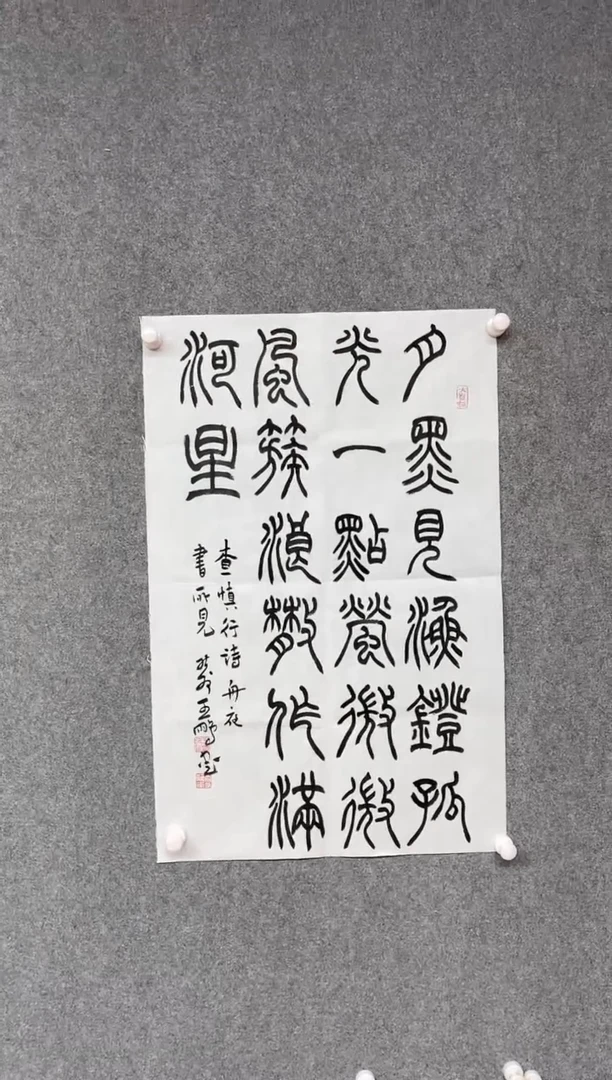 月黑見漁鐙孤
光一點螢微微
風簇浪散作滿
河星
查慎行詩舟夜
書所見 王鵬